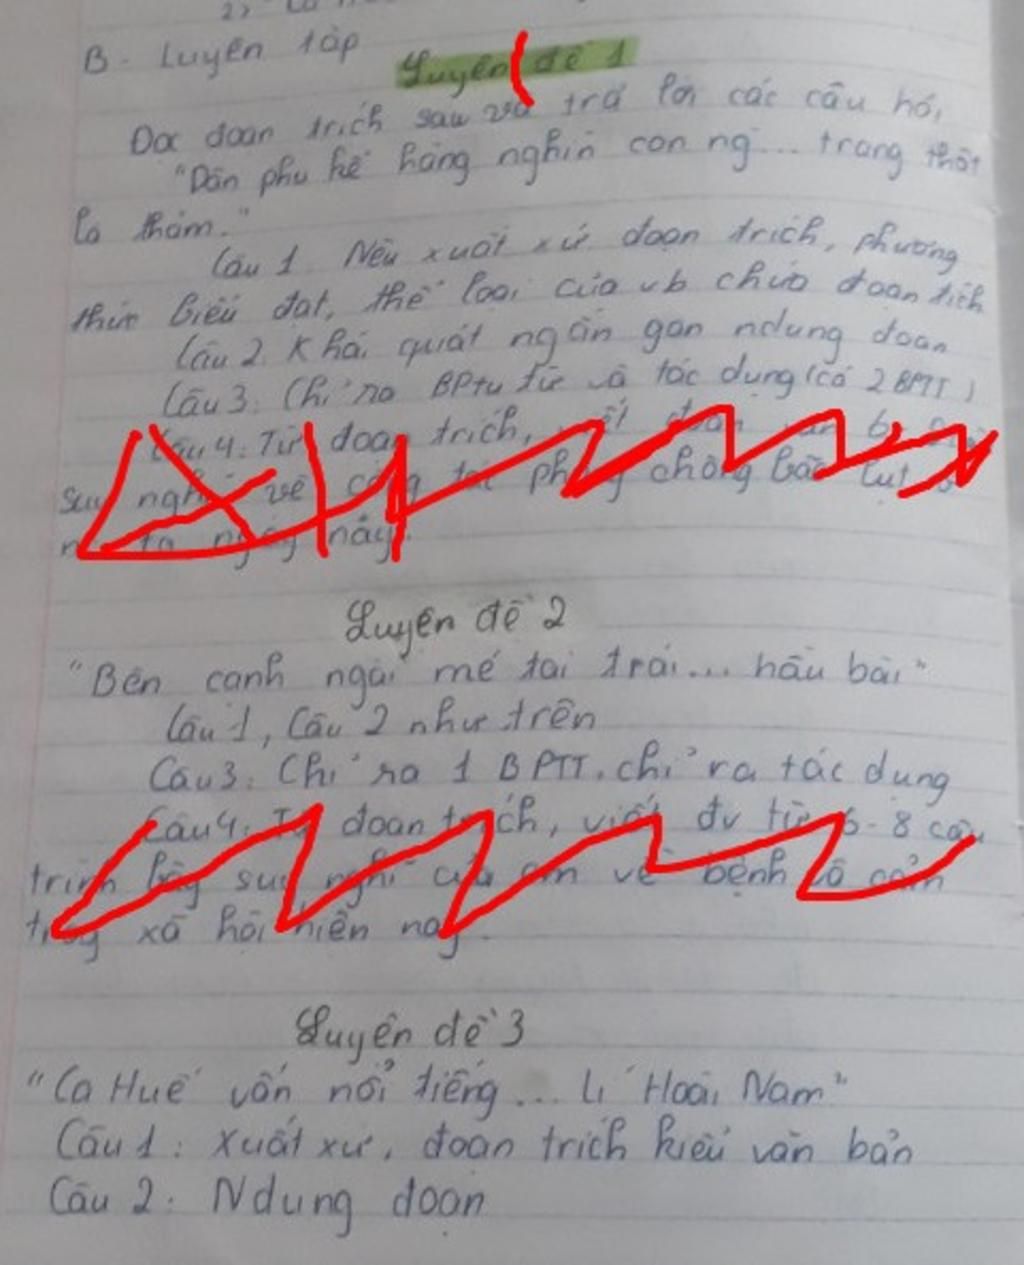 B - Luyện tập
Luyện đề 1
Đọc đoạn trích sau và trả lời các câu hỏi,
"Dân phu kể hàng nghìn con ng... trông thật
là thảm."
Câu 1. Nêu xuất xứ đoạn trích, phương
thức biểu đạt, thể loại của vb chứa đoạn trích
Câu 2. Khái quát ngắn gọn ndung đoạn
Câu 3: Chỉ ra BPtu từ và tác dụng (có 2 BPTT)
Câu 4: Từ đoạn trích,
suy nghĩ về công tác phòng chống bão lụt
ngày nay.
Luyện đề 2
"Bên cạnh ngài mé tai trái... hầu bài"
Câu 1, Câu 2 như trên
Câu 3: Chỉ ra 1 BPTT. chỉ ra tác dụng
Câu 4: Từ đoạn trích, viết đv từ 6-8 câu
trình bày suy nghĩ của em về bệnh vô cảm
trong xã hội hiện nay.
Luyện đề 3
"Ca Huế vốn nổi tiếng... lí Hoài Nam"
Câu 1: Xuất xứ, đoạn trích kiểu văn bản
Câu 2: Ndung đoạn